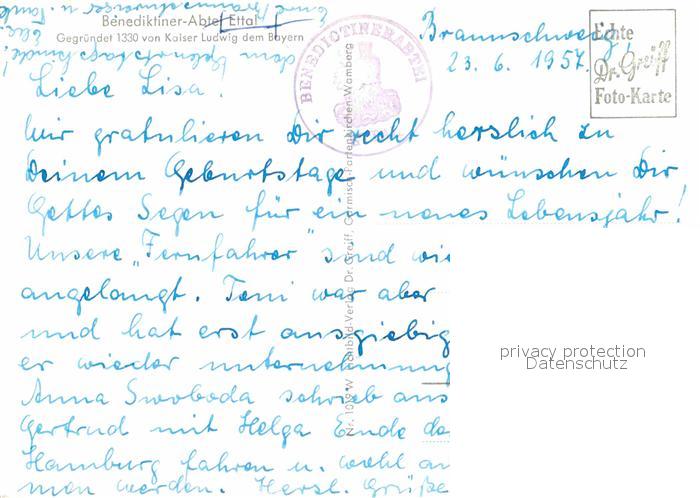 Benediktiner-Abtei Ettal
Gegründet 1330 von Kaiser Ludwig dem Bayern
BENEDICTINERABTEI
Echte
Dr. Greiff
Foto-Karte
Braunschweig,
23. 6. 1957.
Liebe Lisa.
Wir gratulieren Dir recht herzlich zu
Deinem Geburtstage und wünschen Dir
Gottes Segen für ein neues Lebensjahr!
Unsere „Fernfahrer" sind wie
angelangt. Toni war aber
und hat erst ausgiebig
er wieder unternehmung
Anna Swoboda schrieb aus
Gertrud mit Helga Ende
Hamburg fahren u. wohl
men werden. Herzl. Grüße
dem Geburtstagskinde!
privacy protection
Datenschutz